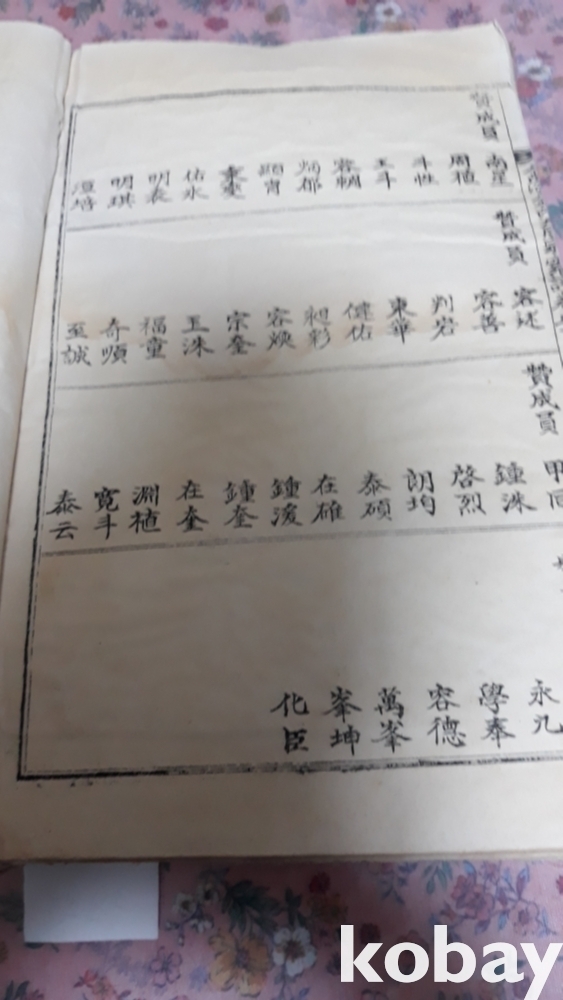 贊成員
尚星
周植
斗性
王斗
容稠
炳郁
顯胄
佑永
明表
明琪
贊成員
容珏
容善
判岩
東華
健佑
昶彰
容煥
宗奎
玉洙
福童
奇順
至誠
贊成員
甲同
鍾洙
啓烈
朗均
泰碩
在確
鍾湲
鍾奎
在奎
淵植
寬斗
泰云
永九
學奉
容德
萬峯
峯坤
化臣
kobay